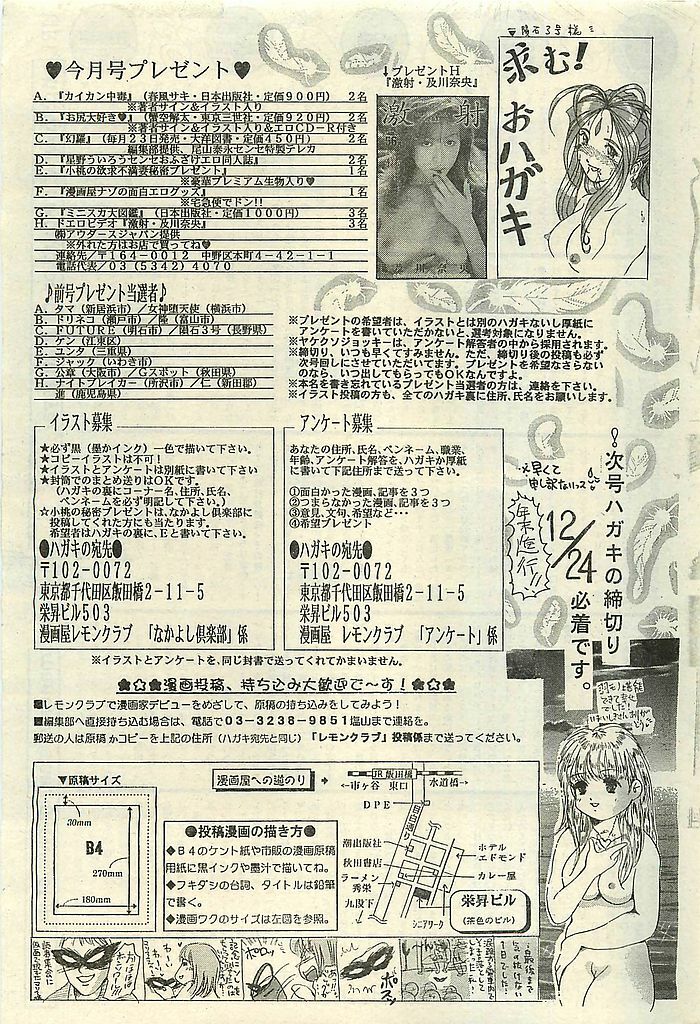 ♥今月号プレゼント♥
A.『カイカン中毒』(春風サキ・日本出版社・定価900円) 2名
※著者サイン&イラスト入り
B.『お尻大好き♥』(蟹空解太・東京三世社・定価920円) 2名
※著者サイン&イラスト入り&エロCD-R付き
C.『幻羅』(毎月23日発売・大洋図書・定価450円) 2名
編集部提供、尾山泰永センセ特製テレカ
D.『星野ういろうセンセおふざけエロ同人誌』 2名
E.『小桃の欲求不満妻秘密プレゼント』 1名
※豪華プレミアム生物入り♥
F.『漫画屋ナゾの面白エログッズ』 1名
※宅急便でドン!!
G.『ミニスカ大図鑑』(日本出版社・定価1000円) 3名
H.ドエロビデオ『激射・及川奈央』 3名
㈱アウダースジャパン提供
※外れた方はお店で買ってね♥
連絡先/〒164-0012 中野区本町4-42-1-1
電話代表/03(5342)4070
↓プレゼントH
『激射・及川奈央』
激射
及川奈央
▼隕石3号様
求む!
おハガキ
♪前号プレゼント当選者♪
A.タマ(新居浜市)/女神堕天使(横浜市)
B.ドリネコ(瀬戸市)/隆(富山市)
C.FUTURE(明石市)/隕石3号(長野県)
D.ケン(江東区)
E.ユンタ(三重県)
F.ジャック(いわき市)
G.公章(大阪市)/Gスポット(秋田県)
H.ナイトブレイカー(所沢市)/仁(新田郡)
進(鹿児島県)
※プレゼントの希望者は、イラストとは別のハガキないし厚紙に
アンケートを書いていただかないと、選考対象になりません。
※ヤケクソジョッキーは、アンケート解答者の中から採用されます。
※締切り、いつも早くてすみません。ただ、締切り後の投稿も必ず
次号回しにさせていただいてます。プレゼントを希望なさらない
のなら、いつ出してもらってもOKなんですよ。
※本名を書き忘れているプレゼント当選者の方は、連絡を下さい。
※イラスト投稿の方も、全てのハガキ裏に住所、氏名をお願いします。
イラスト募集
★必ず黒(墨かインク)一色で描いて下さい。
★コピーイラストは不可!
★イラストとアンケートは別紙に書いて下さい
★封筒でのまとめ送りはOKです。
(ハガキの裏にコーナー名、住所、氏名、
ペンネームを必ず明記して下さい。)
☆小桃の秘密プレゼントは、なかよし倶楽部に
投稿してくれた方にも当たります。
希望者はハガキの裏に、Eと書いて下さい。
●ハガキの宛先●
〒102-0072
東京都千代田区飯田橋2-11-5
栄昇ビル503
漫画屋レモンクラブ 「なかよし倶楽部」係
アンケート募集
あなたの住所、氏名、ペンネーム、職業、
年齢、アンケート解答を、ハガキか厚紙
に書いて下記住所まで送って下さい。
①面白かった漫画、記事を3つ
②つまらなかった漫画、記事を3つ
③意見、文句、希望など…
④希望プレゼント
●ハガキの宛先●
〒102-0072
東京都千代田区飯田橋2-11-5
栄昇ビル503
漫画屋 レモンクラブ 「アンケート」係
次号ハガキの締切り
12/24必着です。
早くて
申し訳ないっス
年末進行!!
※イラストとアンケートを、同じ封書で送ってくれてかまいません。
★✩★漫画投稿、持ち込み大歓迎で〜す!★✩★
■レモンクラブで漫画家デビューをめざして、原稿の持ち込みをしてみよう!
■編集部へ直接持ち込む場合は、電話で03-3238-9851塩山まで連絡を。
郵送の人は原稿かコピーを上記の住所(ハガキ宛先と同じ)「レモンクラブ」投稿係まで送ってください。
▼原稿サイズ
30mm
B4
270mm
180mm
漫画屋への道のり
●投稿漫画の描き方●
◆B4のケント紙や市販の漫画原稿
用紙に黒インクや墨汁で描いてね。
◆フキダシの台詞、タイトルは鉛筆
で書く。
◆漫画ワクのサイズは左図を参照。
JR飯田橋
←市ヶ谷 東口
水道橋→
DPE
目白通り
潮出版社
秋田書店
ラーメン
秀栄
九段下
ホテル
エドモンド
カレー屋
シニアワーク
栄昇ビル
(茶色のビル)